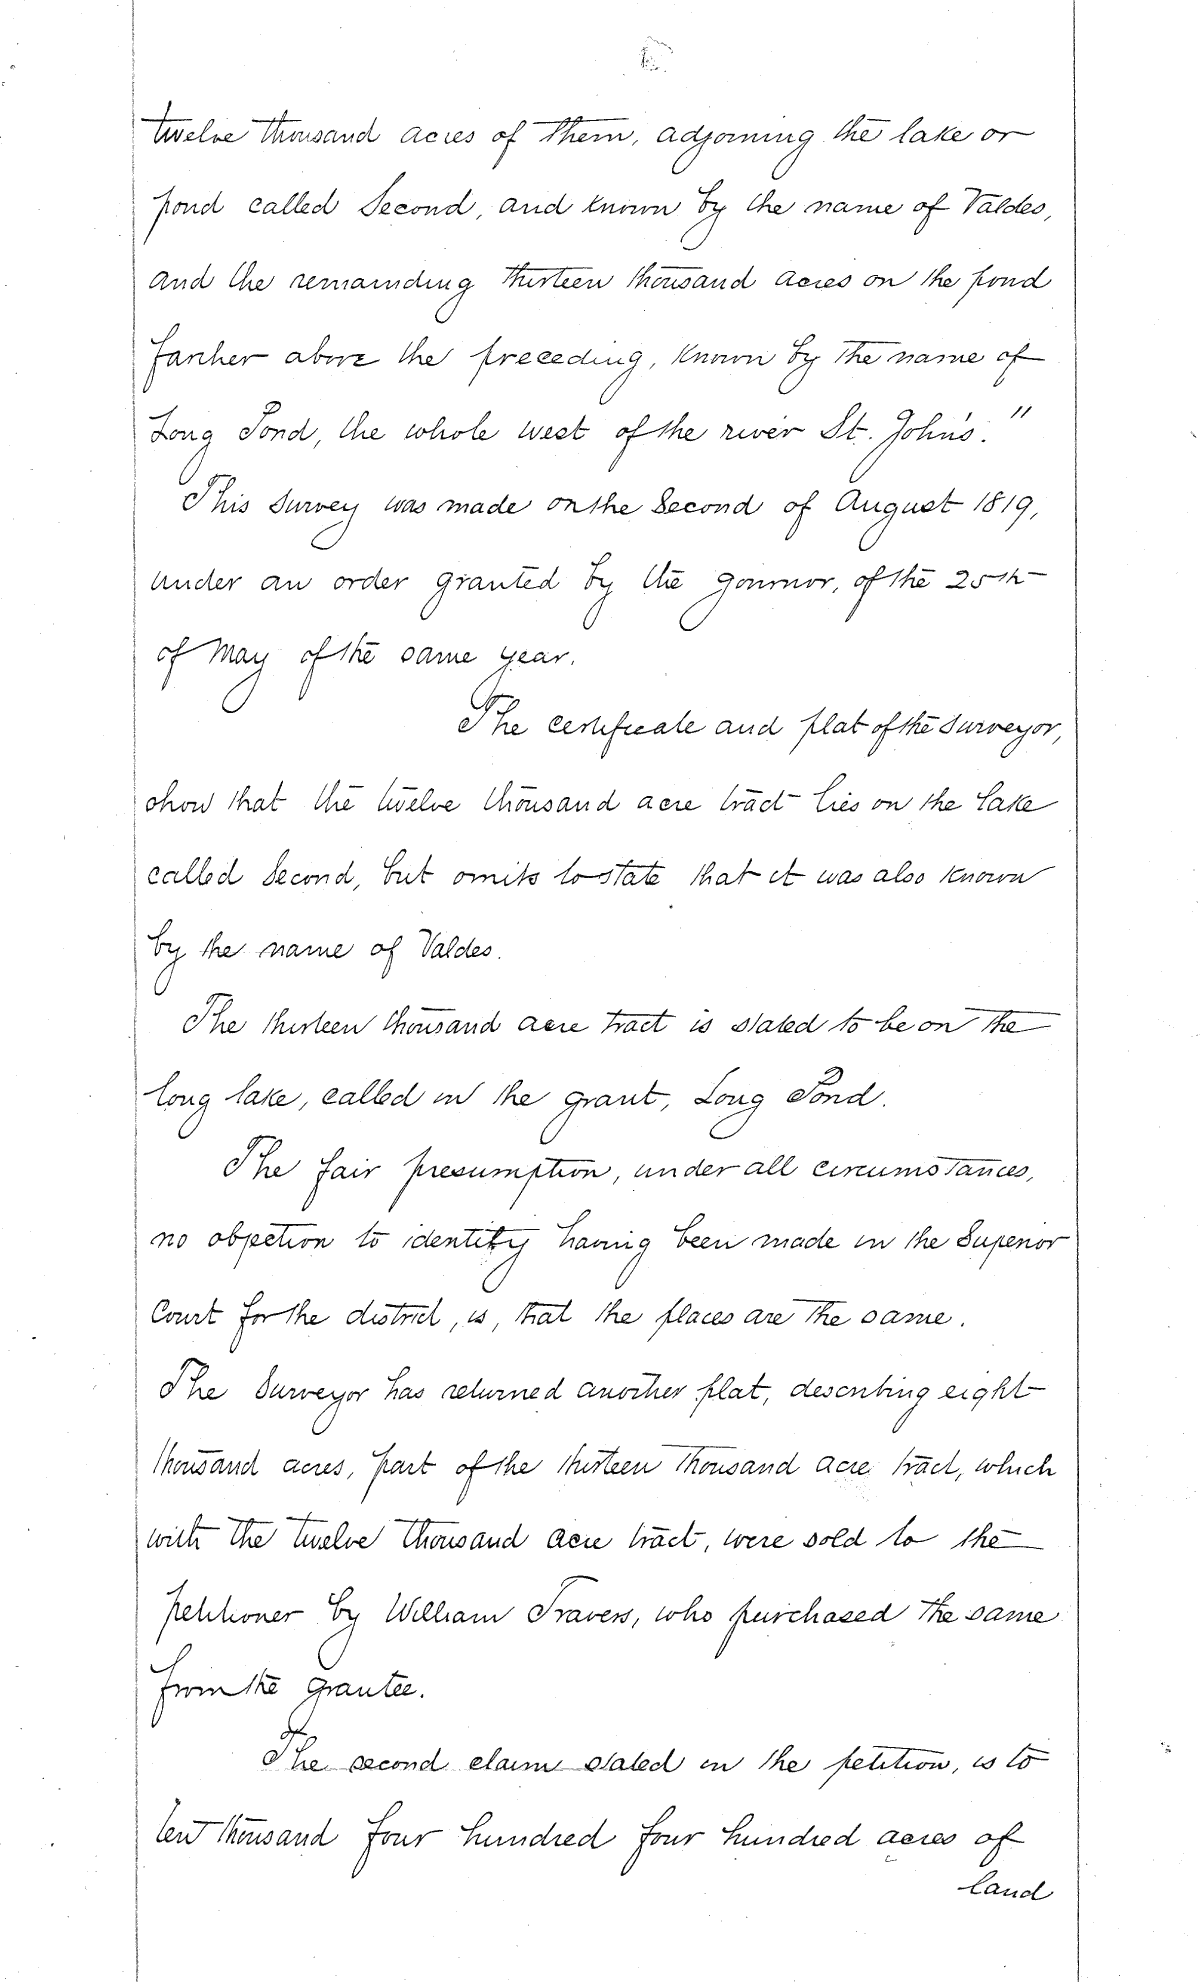 twelve thousand acres of them, adjoining the lake or
pond called Second, and known by the name of Valdes,
and the remainding thirteen thousand acres on the pond
farther above the preceding, known by the name of
Long Pond, the whole west of the river St. John's."
This survey was made on the Second of August 1819,
under an order granted by the governor, of the 25th
of May of the same year.
The certificate and plat of the surveyor,
show that the twelve thousand acre tract lies on the lake
called Second, but omits to state that it was also known
by the name of Valdes.
The thirteen thousand acre tract is stated to be on the
long lake, called in the grant, Long Pond.
The fair presumption, under all circumstances,
no objection to identity having been made in the Superior
Court for the district, is, that the places are the same.
The Surveyor has returned another plat, describing eight
thousand acres, part of the thirteen thousand acre tract, which
with the twelve thousand acre tract, were sold to the
petitioner by William Travers, who purchased the same
from the grantee.
The second claim stated in the petition, is to
ten thousand four hundred four hundred acres of
land